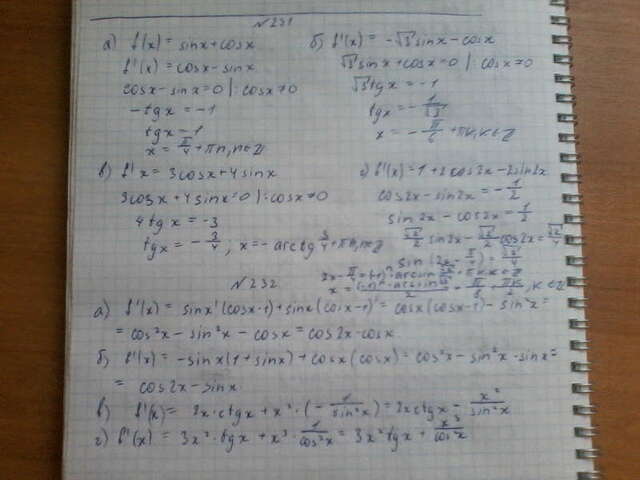 №231
а) f(x) = sinx + cosx
f'(x) = cosx - sinx
cosx - sinx = 0 | : cosx ≠ 0
-tgx = -1
tgx - 1
x = π/4 + πn, n∈Z
б) f'(x) = -√3 sinx - cosx
√3 sinx + cosx = 0 | : cosx ≠ 0
√3 tgx = -1
tgx = - 1/√3
x = - π/6 + πk, k∈Z
в) f' x = 3cosx + 4sinx
3cosx + 4sinx = 0 | : cosx ≠ 0
4tgx = -3
tgx = - 3/4 ; x = - arctg 3/4 + πn, n∈Z
г) f'(x) = 1 + 2cos2x - 2sin2x
cos2x - sin2x = - 1/2
sin2x - cos2x = 1/2
√2/2 sin2x - √2/2 cos2x = √2/4
sin(2x - π/4) = √2/4
№232
а) f'(x) = sinx'(cosx-1) + sinx(cosx-1)' = cosx(cosx-1) - sin²x =
= cos²x - sin²x - cosx = cos2x - cosx
б) f'(x) = -sinx(1 + sinx) + cosx(cosx) = cos²x - sin²x - sinx =
= cos2x - sinx
в) f'(x) = 2x · ctgx + x² · (- 1/sin²x) = 2xctgx - x²/sin²x
г) f'(x) = 3x² · tgx + x³ · 1/cos²x = 3x²tgx + x³/cos²x